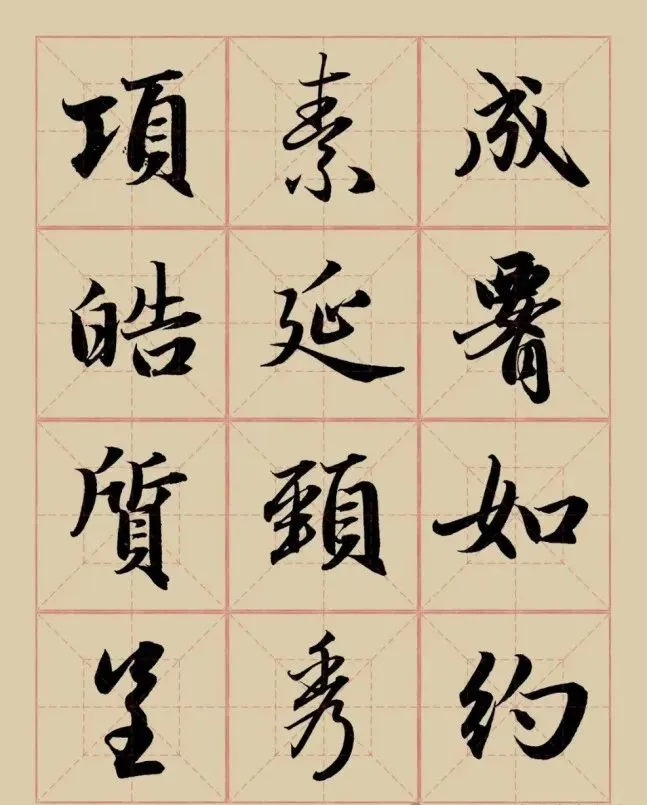 成腰如約
素延頸秀
項皓質呈